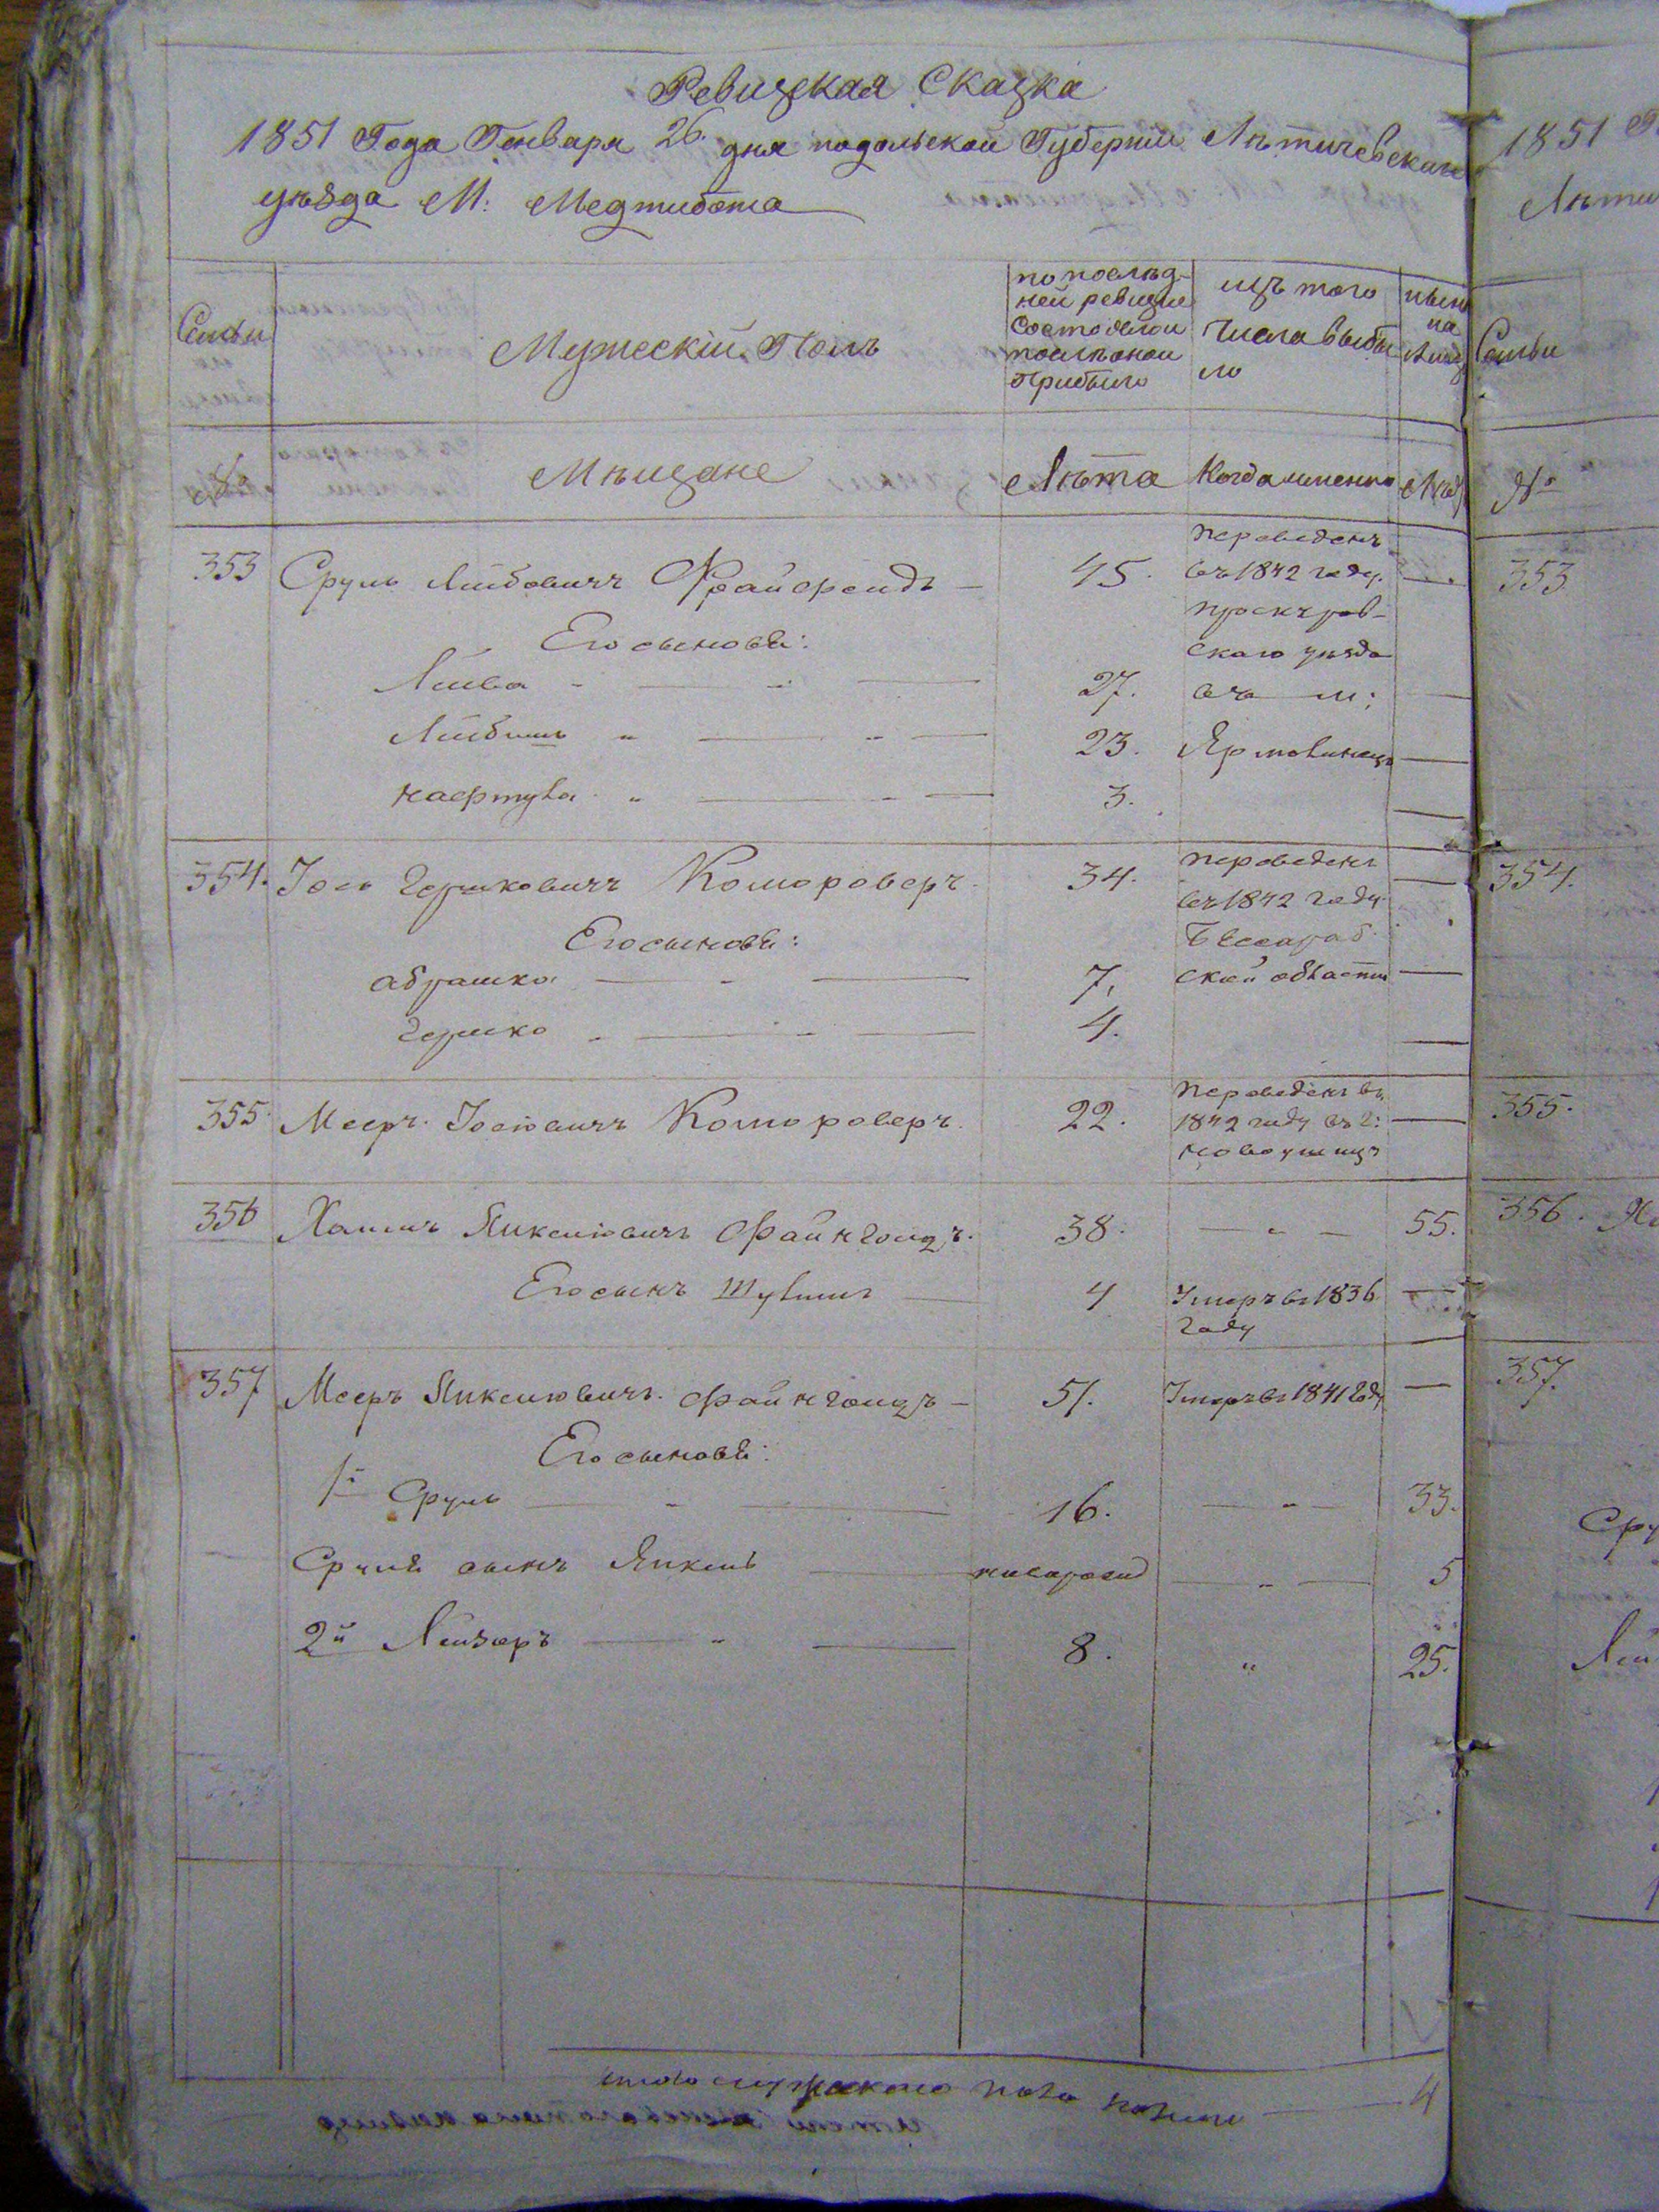 Ревизская Сказка
1851 Года Генваря 26. дня подольской Губернии Лѣтичевскаго
уѣзда М: Меджибожа
Семьи
Мужескій Полъ
по послѣд-
ней ревизіи
состояло и
послѣ оной
прибыло
изъ того
числа выбы
ло
нынѣ
на
лицо
№
Мѣщане
Лѣта
Когда именно
Лѣта
353 Сруль Лейбовичъ Фрайфельдъ — 45. переведенъ
въ 1842 году.
проскуров-
скаго уѣзда
въ м:
Ярмолинецъ
Его сыновѣ:
Лейба 27.
Лейбишъ 23.
Нафтула 3.
354. Іось Гершковичъ Комороверъ. 34. переведенъ
въ 1842 году
Бессараб.
ской области
Его сыновѣ:
Абрашко 7.
Гершко 4.
355 Мееръ Іосіовичъ Комороверъ. 22. переведенъ въ
1842 году въ г:
Новоушицъ
356 Хаимъ Янкелювичъ Файнгольцъ. 38. — 55.
Его сынъ Шулимъ 4 Умеръ въ 1836
году
357 Мееръ Янкелювичъ Файнгольцъ — 51. Умеръ въ 1841 году —
Его сыновѣ:
1й Сруль 16. — 33.
Сруля сынъ Янкель новорожд — 5
2й Лейзоръ 8. " 25.
итого мужскаго пола налицо 4
1851
Лѣти
Семьи
№
353
354.
355.
356.
357.
Сру
Лей